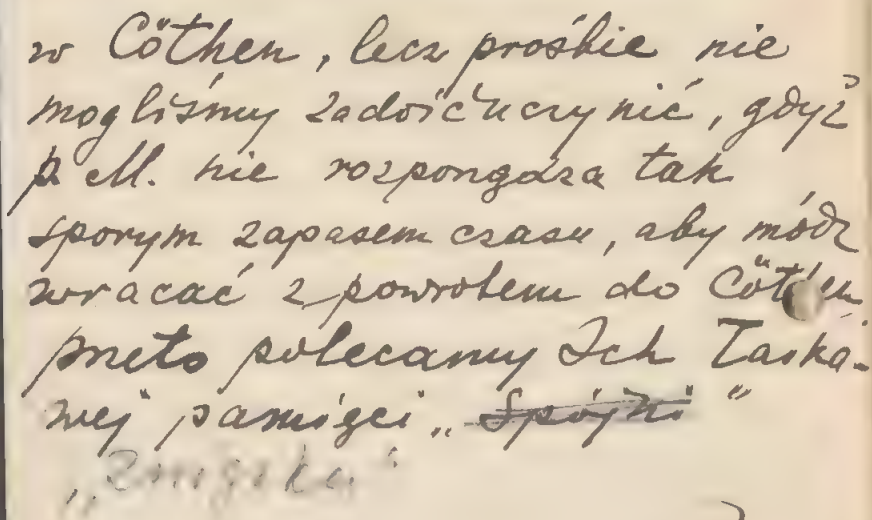 w Cöthen, lecz prośbie nie
mogliśmy zadość uczynić, gdyż
p. M. nie rozporządza tak
sporym zapasem czasu, aby módz
wracać z powrotem do Cöthen
przeto polecamy Ich Łaska-
wej pamięci „Spójni"
„Związku"